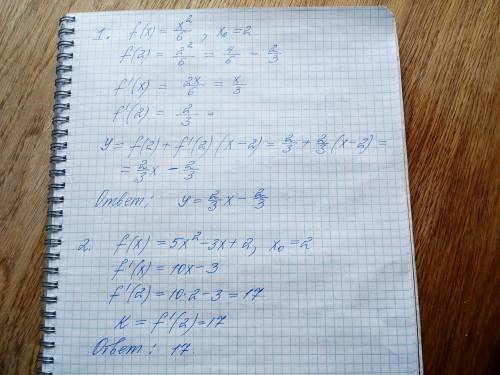 1. f(x) = x²/6, x₀ = 2
f(2) = 2²/6 = 4/6 = 2/3
f'(x) = 2x/6 = x/3
f'(2) = 2/3
y = f(2) + f'(2)(x-2) = 2/3 + 2/3(x-2) =
= 2/3x - 2/3
Ответ: y = 2/3x - 2/3
2. f(x) = 5x² - 3x + 2, x₀ = 2
f'(x) = 10x - 3
f'(2) = 10·2 - 3 = 17
K = f'(2) = 17
Ответ: 17